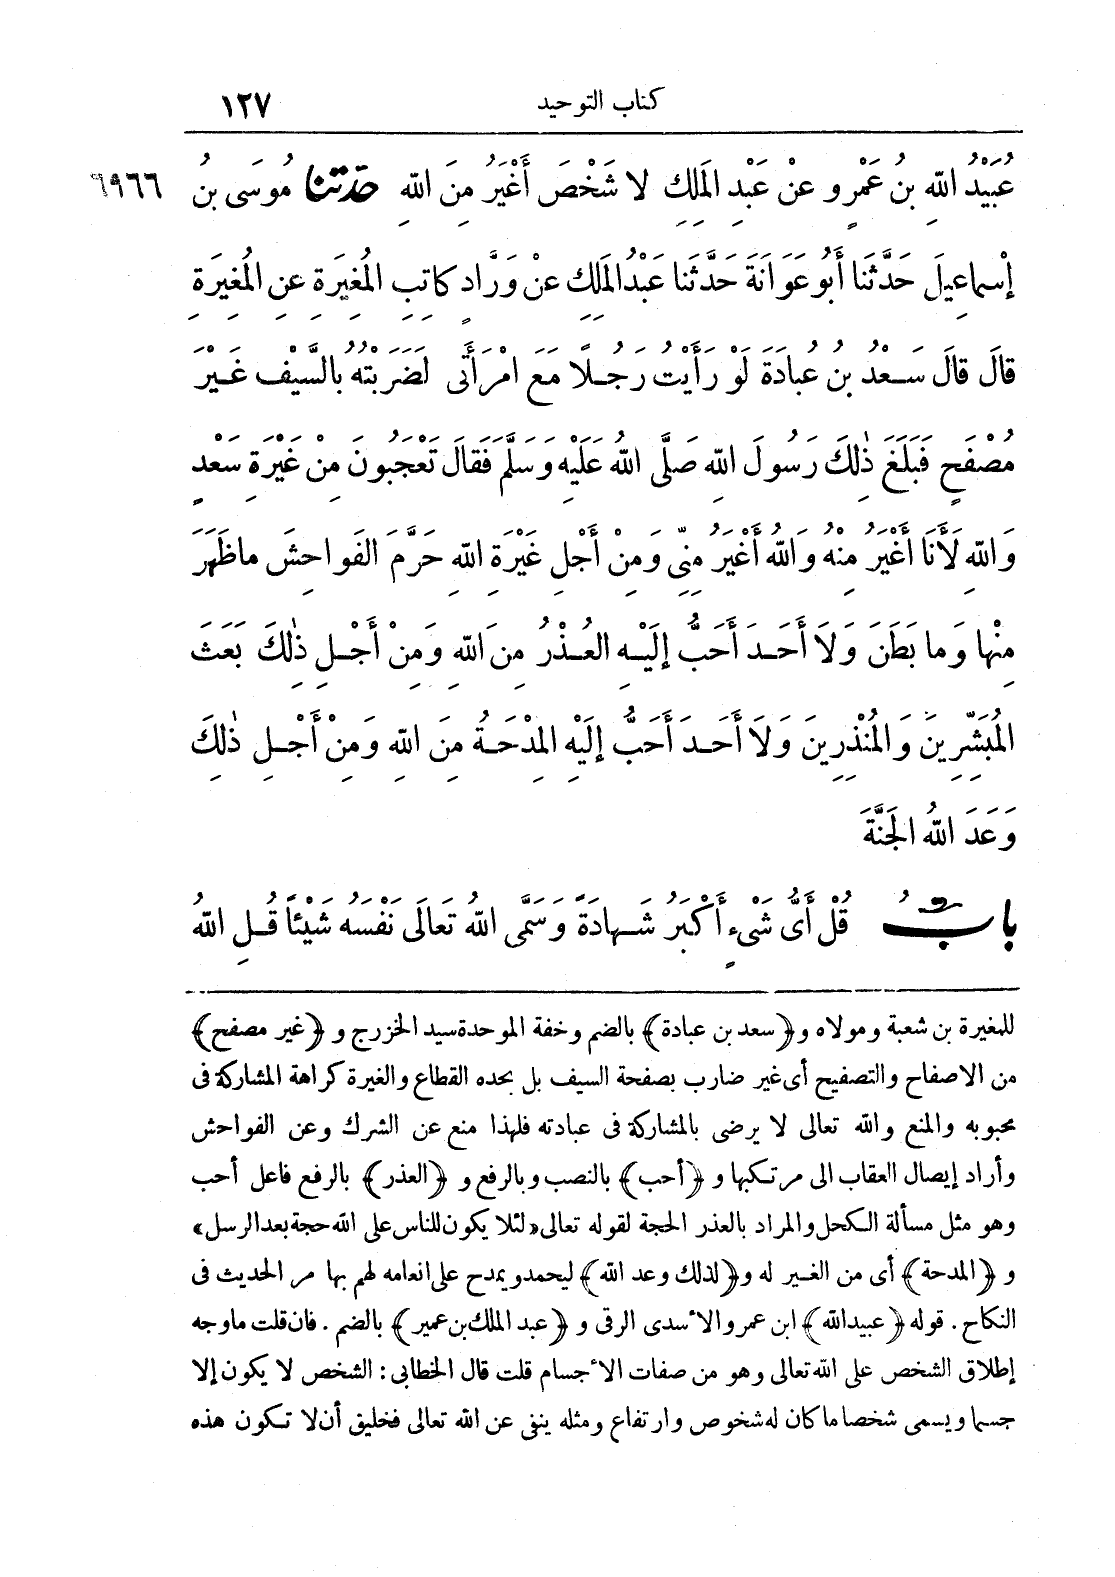 كتاب التوحيد ١٢٧
عُبَيْدُ اللهِ بنُ عَمْرٍو عنْ عَبْدِ المَلِكِ لا شَخْصَ أَغْيَرُ مِنَ اللهِ حَدَّثَنَا مُوسَى بنُ ٦٩٦٦
إسْماعِيلَ حَدَّثَنا أَبُو عَوَانَةَ حَدَّثَنا عَبْدُ المَلِكِ عنْ وَرَّادٍ كاتِبِ المُغِيرَةِ عنِ المُغِيرَةِ
قالَ قالَ سَعْدُ بنُ عُبادَةَ لَوْ رَأَيْتُ رَجُلًا مَعَ امْرَأَتِى لَضَرَبْتُهُ بالسَّيْفِ غَيْرَ
مُصْفَحٍ فَبَلَغَ ذٰلِكَ رَسُولَ اللهِ صَلَّى اللهُ عَلَيْهِ وَسَلَّمَ فَقالَ تَعْجَبُونَ مِنْ غَيْرَةِ سَعْدٍ
وَاللهِ لَأَنا أَغْيَرُ مِنْهُ وَاللهُ أَغْيَرُ مِنِّى وَمِنْ أَجْلِ غَيْرَةِ اللهِ حَرَّمَ الفَوَاحِشَ ماظَهَرَ
مِنْها وَما بَطَنَ وَلَا أَحَدَ أَحَبُّ إلَيْهِ العُذْرُ مِنَ اللهِ وَمِنْ أَجْلِ ذٰلِكَ بَعَثَ
المُبَشِّرِينَ وَالمُنْذِرِينَ وَلَا أَحَدَ أَحَبُّ إلَيْهِ المِدْحَةُ مِنَ اللهِ وَمِنْ أَجْلِ ذٰلِكَ
وَعَدَ اللهُ الجَنَّةَ
بابٌ قُلْ أَىُّ شَىْءٍ أَكْبَرُ شَهادَةً وَسَمَّى اللهُ تَعالَى نَفْسَهُ شَيْئًا قُلِ اللهُ
للمغيرة بن شعبة ومولاه و﴿سعد بن عبادة﴾ بالضم وخفة الموحدة سيد الخزرج و ﴿غير مصفح﴾
من الاصفاح والتصفيح أى غير ضارب بصفحة السيف بل بحده القطاع والغيرة كراهة المشاركة فى
محبوبه والمنع والله تعالى لا يرضى بالمشاركة فى عبادته فلهذا منع عن الشرك وعن الفواحش
وأراد إيصال العقاب الى مرتكبها و ﴿أحب﴾ بالنصب وبالرفع و ﴿العذر﴾ بالرفع فاعل أحب
وهو مثل مسألة الكحل والمراد بالعذر الحجة لقوله تعالى «لئلا يكون للناس على الله حجة بعد الرسل»
و ﴿المدحة﴾ أى من الغير له و﴿لذلك وعد الله﴾ ليحمد ويمدح على انعامه لهم بها مر الحديث فى
النكاح . قوله ﴿عبيد الله﴾ ابن عمرو الأسدى الرقى و ﴿عبد الملك بن عمير﴾ بالضم . فان قلت ماوجه
إطلاق الشخص على الله تعالى وهو من صفات الأجسام قلت قال الخطابى : الشخص لا يكون إلا
جسما ويسمى شخصا ما كان له شخوص وارتفاع ومثله ينفى عن الله تعالى فخليق أن لا تكون هذه